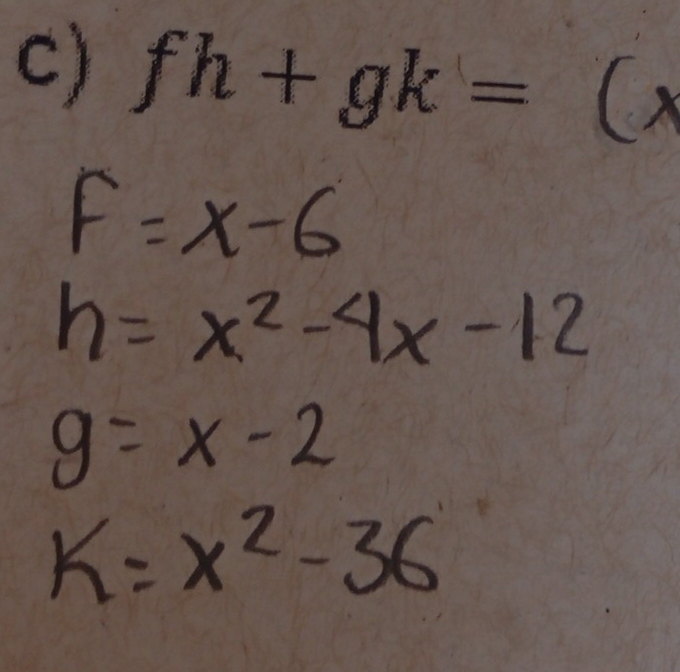 c) fh + gk = (x
F = x - 6
h = x² - 4x - 12
g = x - 2
K = x² - 36